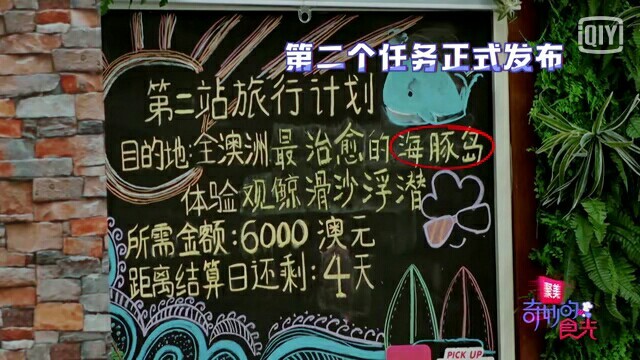 iQIYI
第二个任务正式发布
第二站旅行计划
目的地:全澳洲最治愈的海豚岛
体验观鲸滑沙浮潜
所需金额:6000澳元
距离结算日还剩:4天
聚美
奇妙的食光
PICK UP